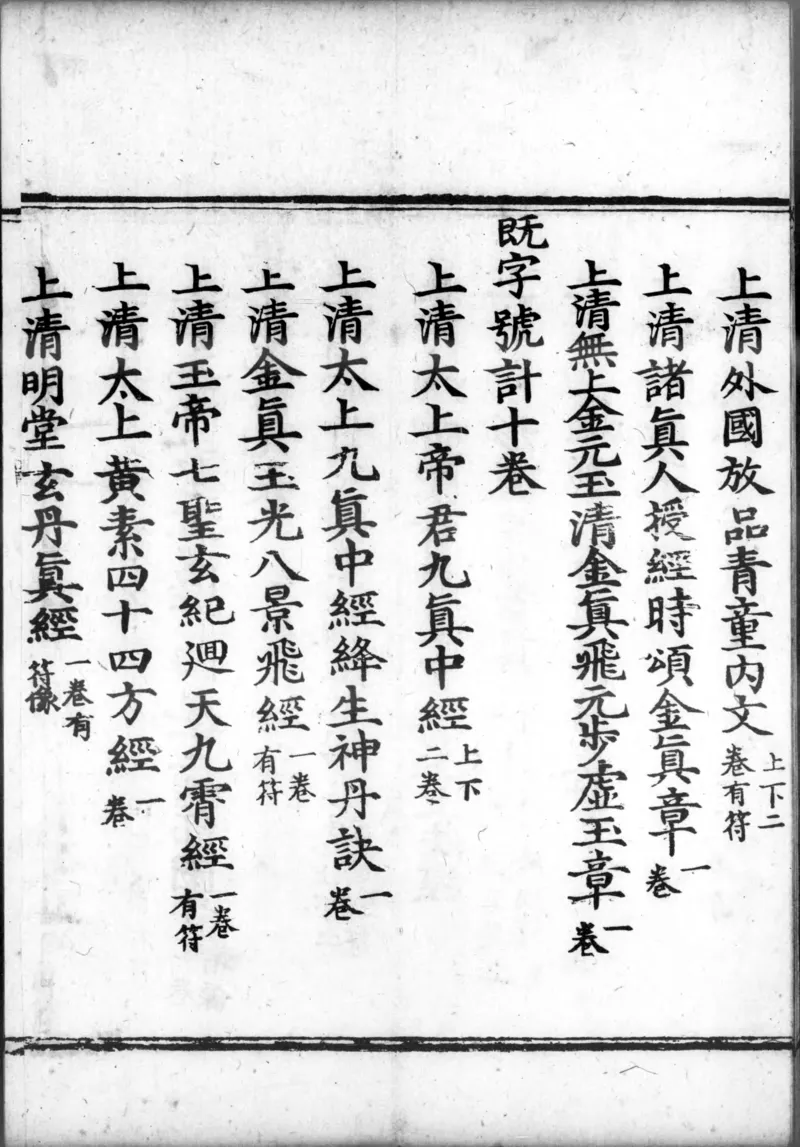 上清外國放品青童内文上下二卷有符
上清諸眞人授經時頌金眞章一卷
上清無上金元玉清金眞飛元步虛玉章一卷
既字號計十卷
上清太上帝君九眞中經上下二卷
上清太上九眞中經絳生神丹訣一卷
上清金眞玉光八景飛經一卷有符
上清玉帝七聖玄紀迴天九霄經一卷有符
上清太上黃素四十四方經一卷
上清明堂玄丹眞經一卷有符像